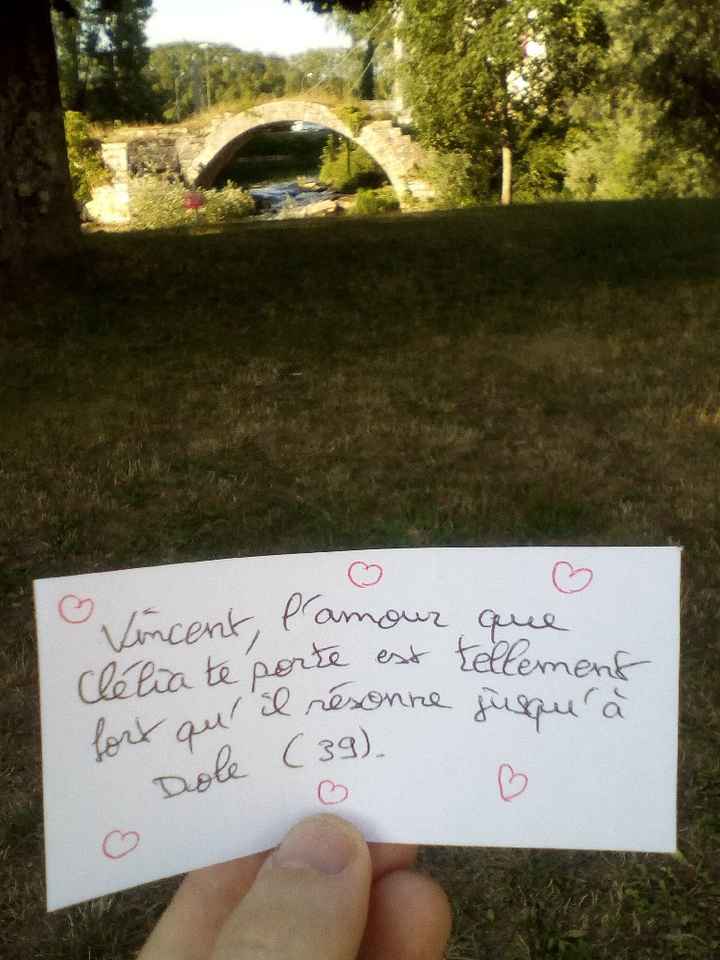 Vincent, l'amour que
Clélia te porte est tellement
fort qu'il résonne jusqu'à
Dole (39).